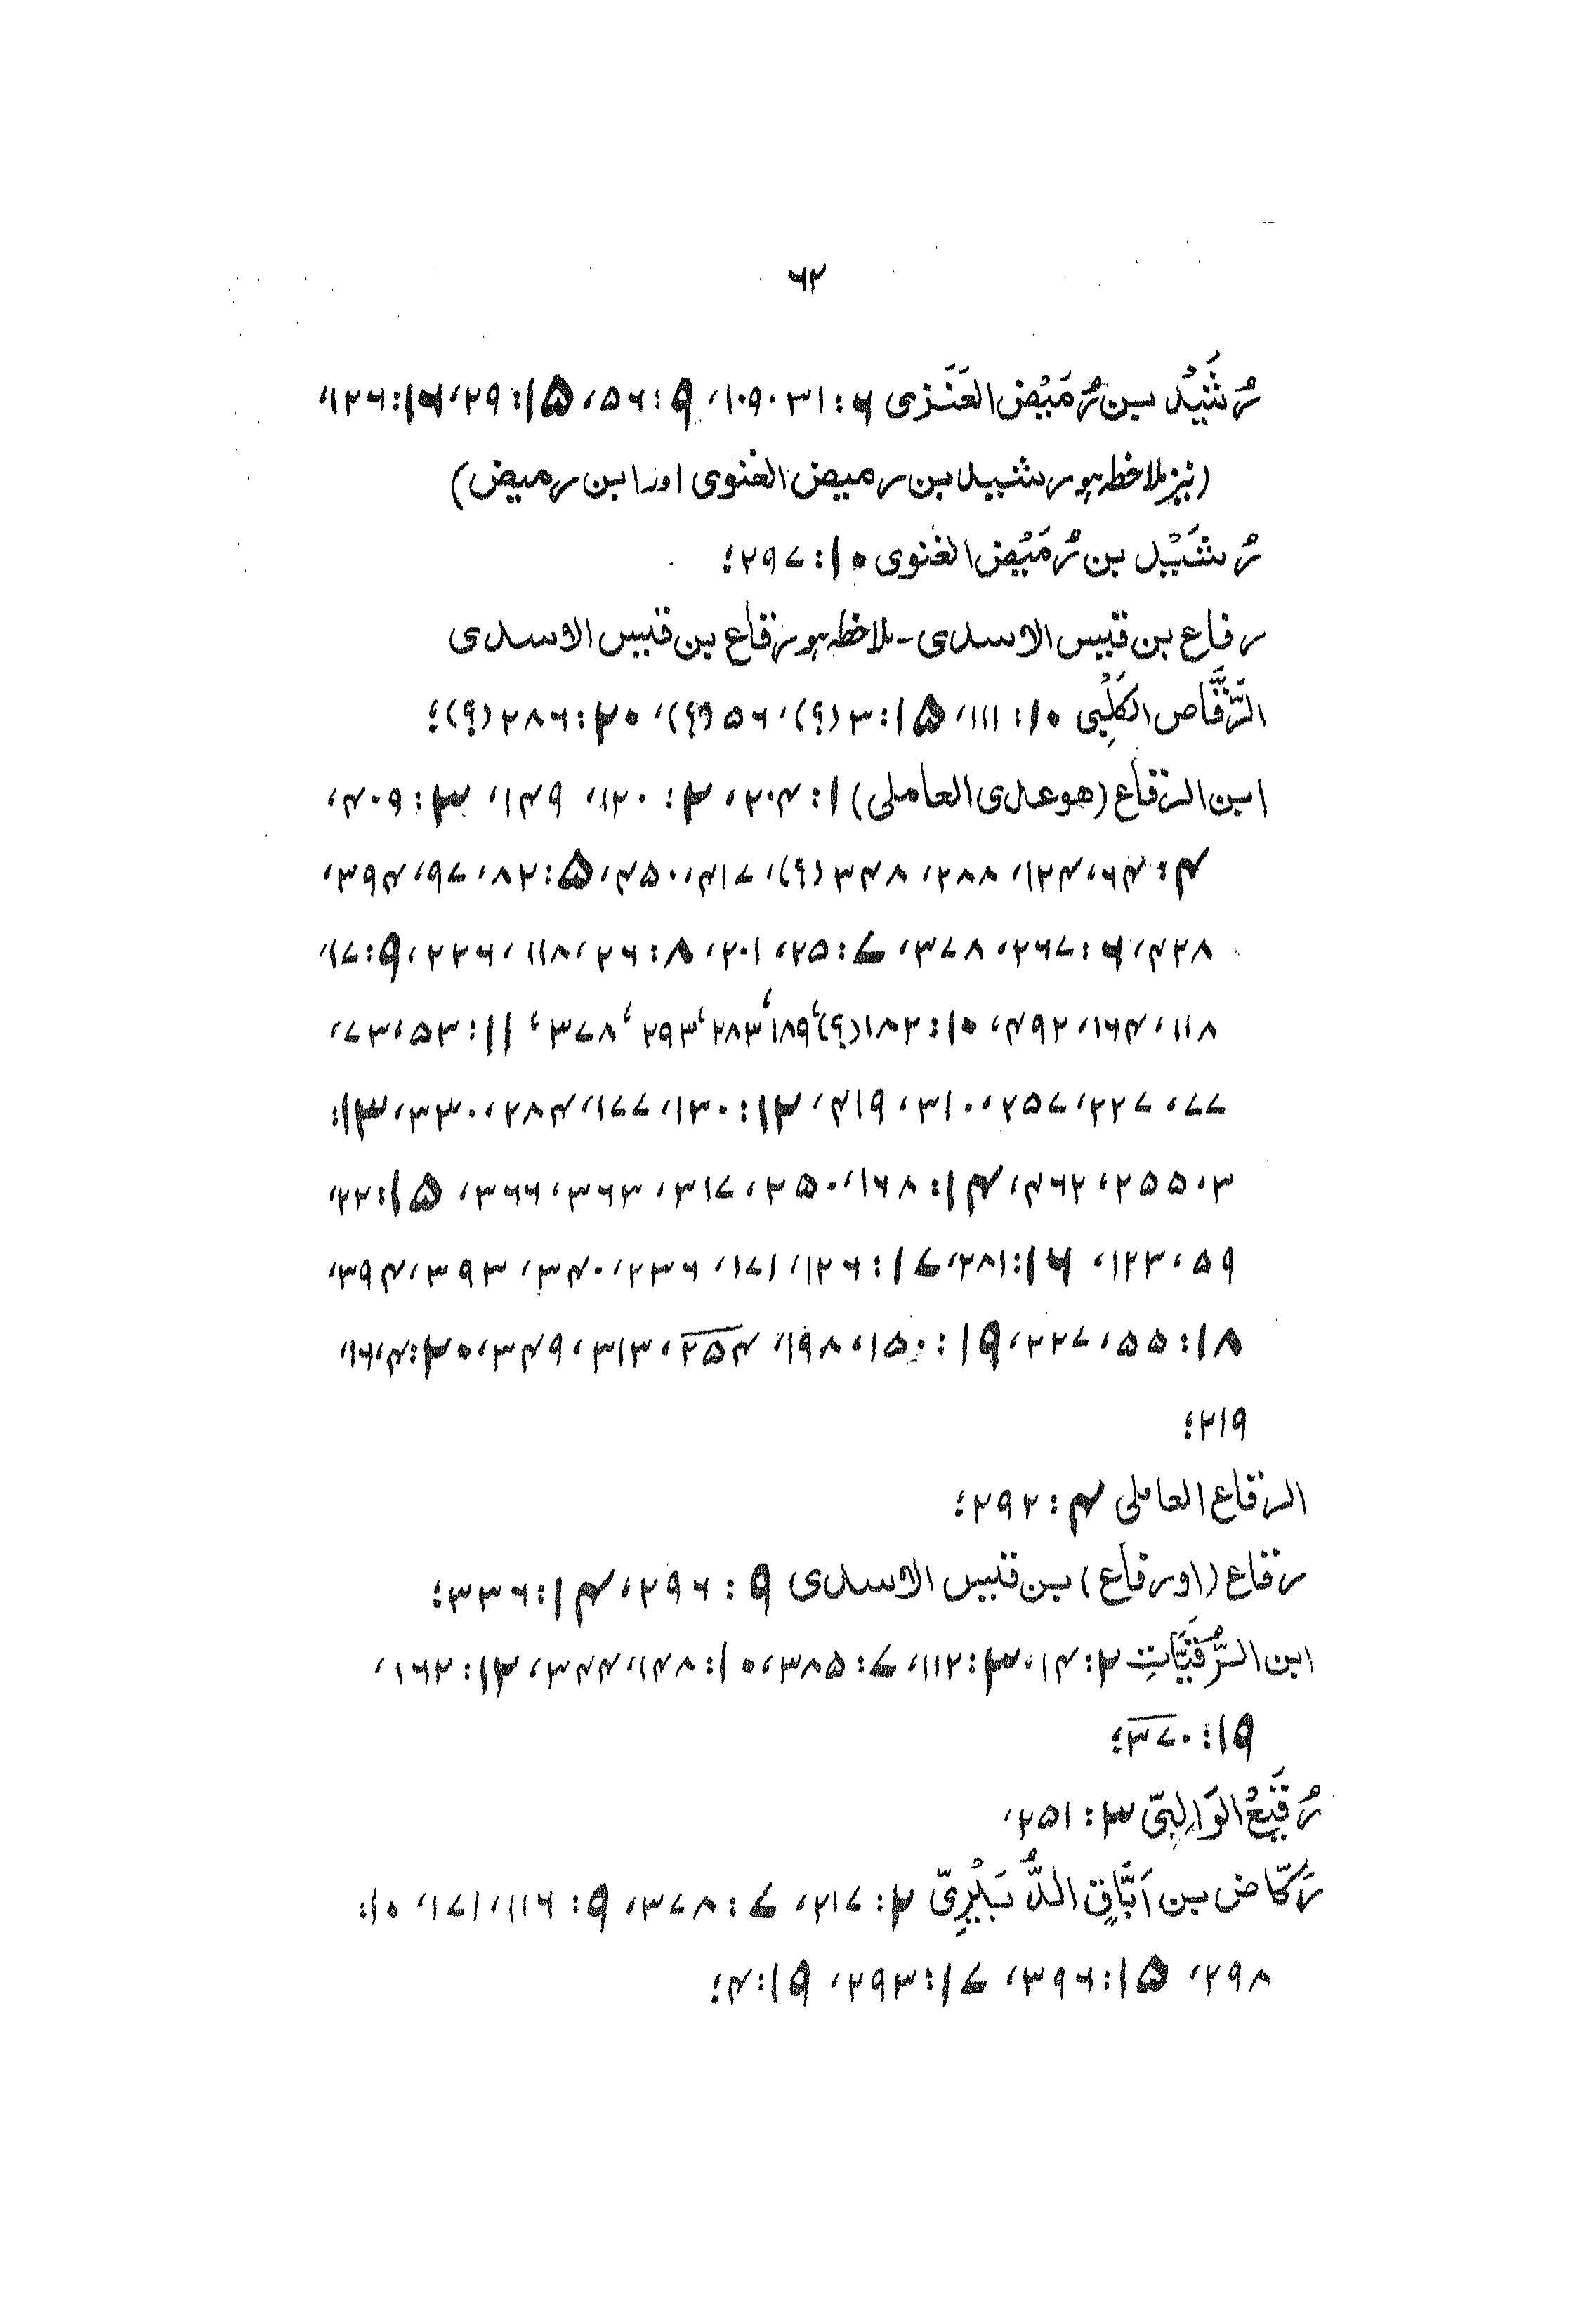 ۶۲
رُشَيْد بن رُمَيْض العَنَزى ۶: ۳۱، ۱۰۹، ۹: ۵۶، ۱۵: ۲۹، ۱۶: ۱۲۶،
(نیز ملاحظہ ہو رشید بن رمیض الغنوی اور ابن رمیض)
رُشَيْد بن رُمَيْض الغنوى ۱۰: ۲۹۷؛
رفاع بن قیس الاسدی - ملاحظہ ہو رقاع بن قیس الاسدی
الرَّقَّاص الكَلْبِى ۱۰: ۱۱۱، ۱۵: ۳ (؟)، ۵۶ (؟)، ۲۰: ۲۸۶ (؟)؛
ابن الرقاع (هو عدى العاملى) ۱: ۲۰۴، ۲: ۱۲۰، ۱۴۹، ۳: ۴۰۹،
۴: ۴۶، ۱۲۴، ۲۸۸، ۳۴۸ (؟)، ۴۱۷، ۴۵۰، ۵: ۲۸، ۸۲، ۹۷، ۳۹۴،
۴۲۸، ۶: ۲۶۷، ۳۷۸، ۷: ۲۵، ۲۰۱، ۸: ۲۶، ۱۱۸، ۲۲۶، ۹: ۱۷،
۱۱۸، ۱۶۴، ۴۹۲، ۱۰: ۱۸۲ (؟)، ۱۸۹، ۲۸۳، ۲۹۳، ۳۷۸، ۱۱: ۳۵، ۳۷،
۷۷، ۲۲۷، ۲۵۷، ۳۱۰، ۴۱۹، ۱۲: ۱۳۰، ۱۷۷، ۲۸۴، ۳۳۰، ۱۳:
۳، ۲۵۵، ۴۶۲، ۱۴: ۱۶۸، ۲۵۰، ۳۱۷، ۳۶۳، ۳۶۶، ۱۵: ۲۲،
۵۹، ۱۲۳، ۱۶: ۲۸۱، ۱۷: ۱۲۶، ۱۷۱، ۲۳۶، ۳۴۰، ۳۹۳، ۳۹۴،
۱۸: ۵۵، ۲۲۷، ۱۹: ۱۵۰، ۱۹۸، ۲۵۴، ۳۱۳، ۳۴۹، ۲۰: ۴، ۱۶،
۲۱۹؛
الرقاع العاملى ۴: ۲۹۲؛
رقاع (اور فاع) بن قیس الاسدی ۹: ۲۹۶، ۱۴: ۳۳۶؛
ابن الرُّقَيَّاتِ ۲: ۴۱، ۳: ۱۱۲، ۷: ۳۸۵، ۱۰: ۱۴۸، ۳۴۴، ۱۲: ۲۶۱،
۱۹: ۳۷۰؛
رُقَيْعُ الوَالِبِىّ ۳: ۲۵۱،
رَكّاض بن اَبَّاقٍ الدُّبَيْرِىّ ۲: ۲۱۷، ۷: ۳۷۸، ۹: ۱۱۶، ۱۷۱، ۱۰:
۲۹۸، ۱۵: ۳۹۶، ۱۷: ۲۹۳، ۱۹: ۴؛